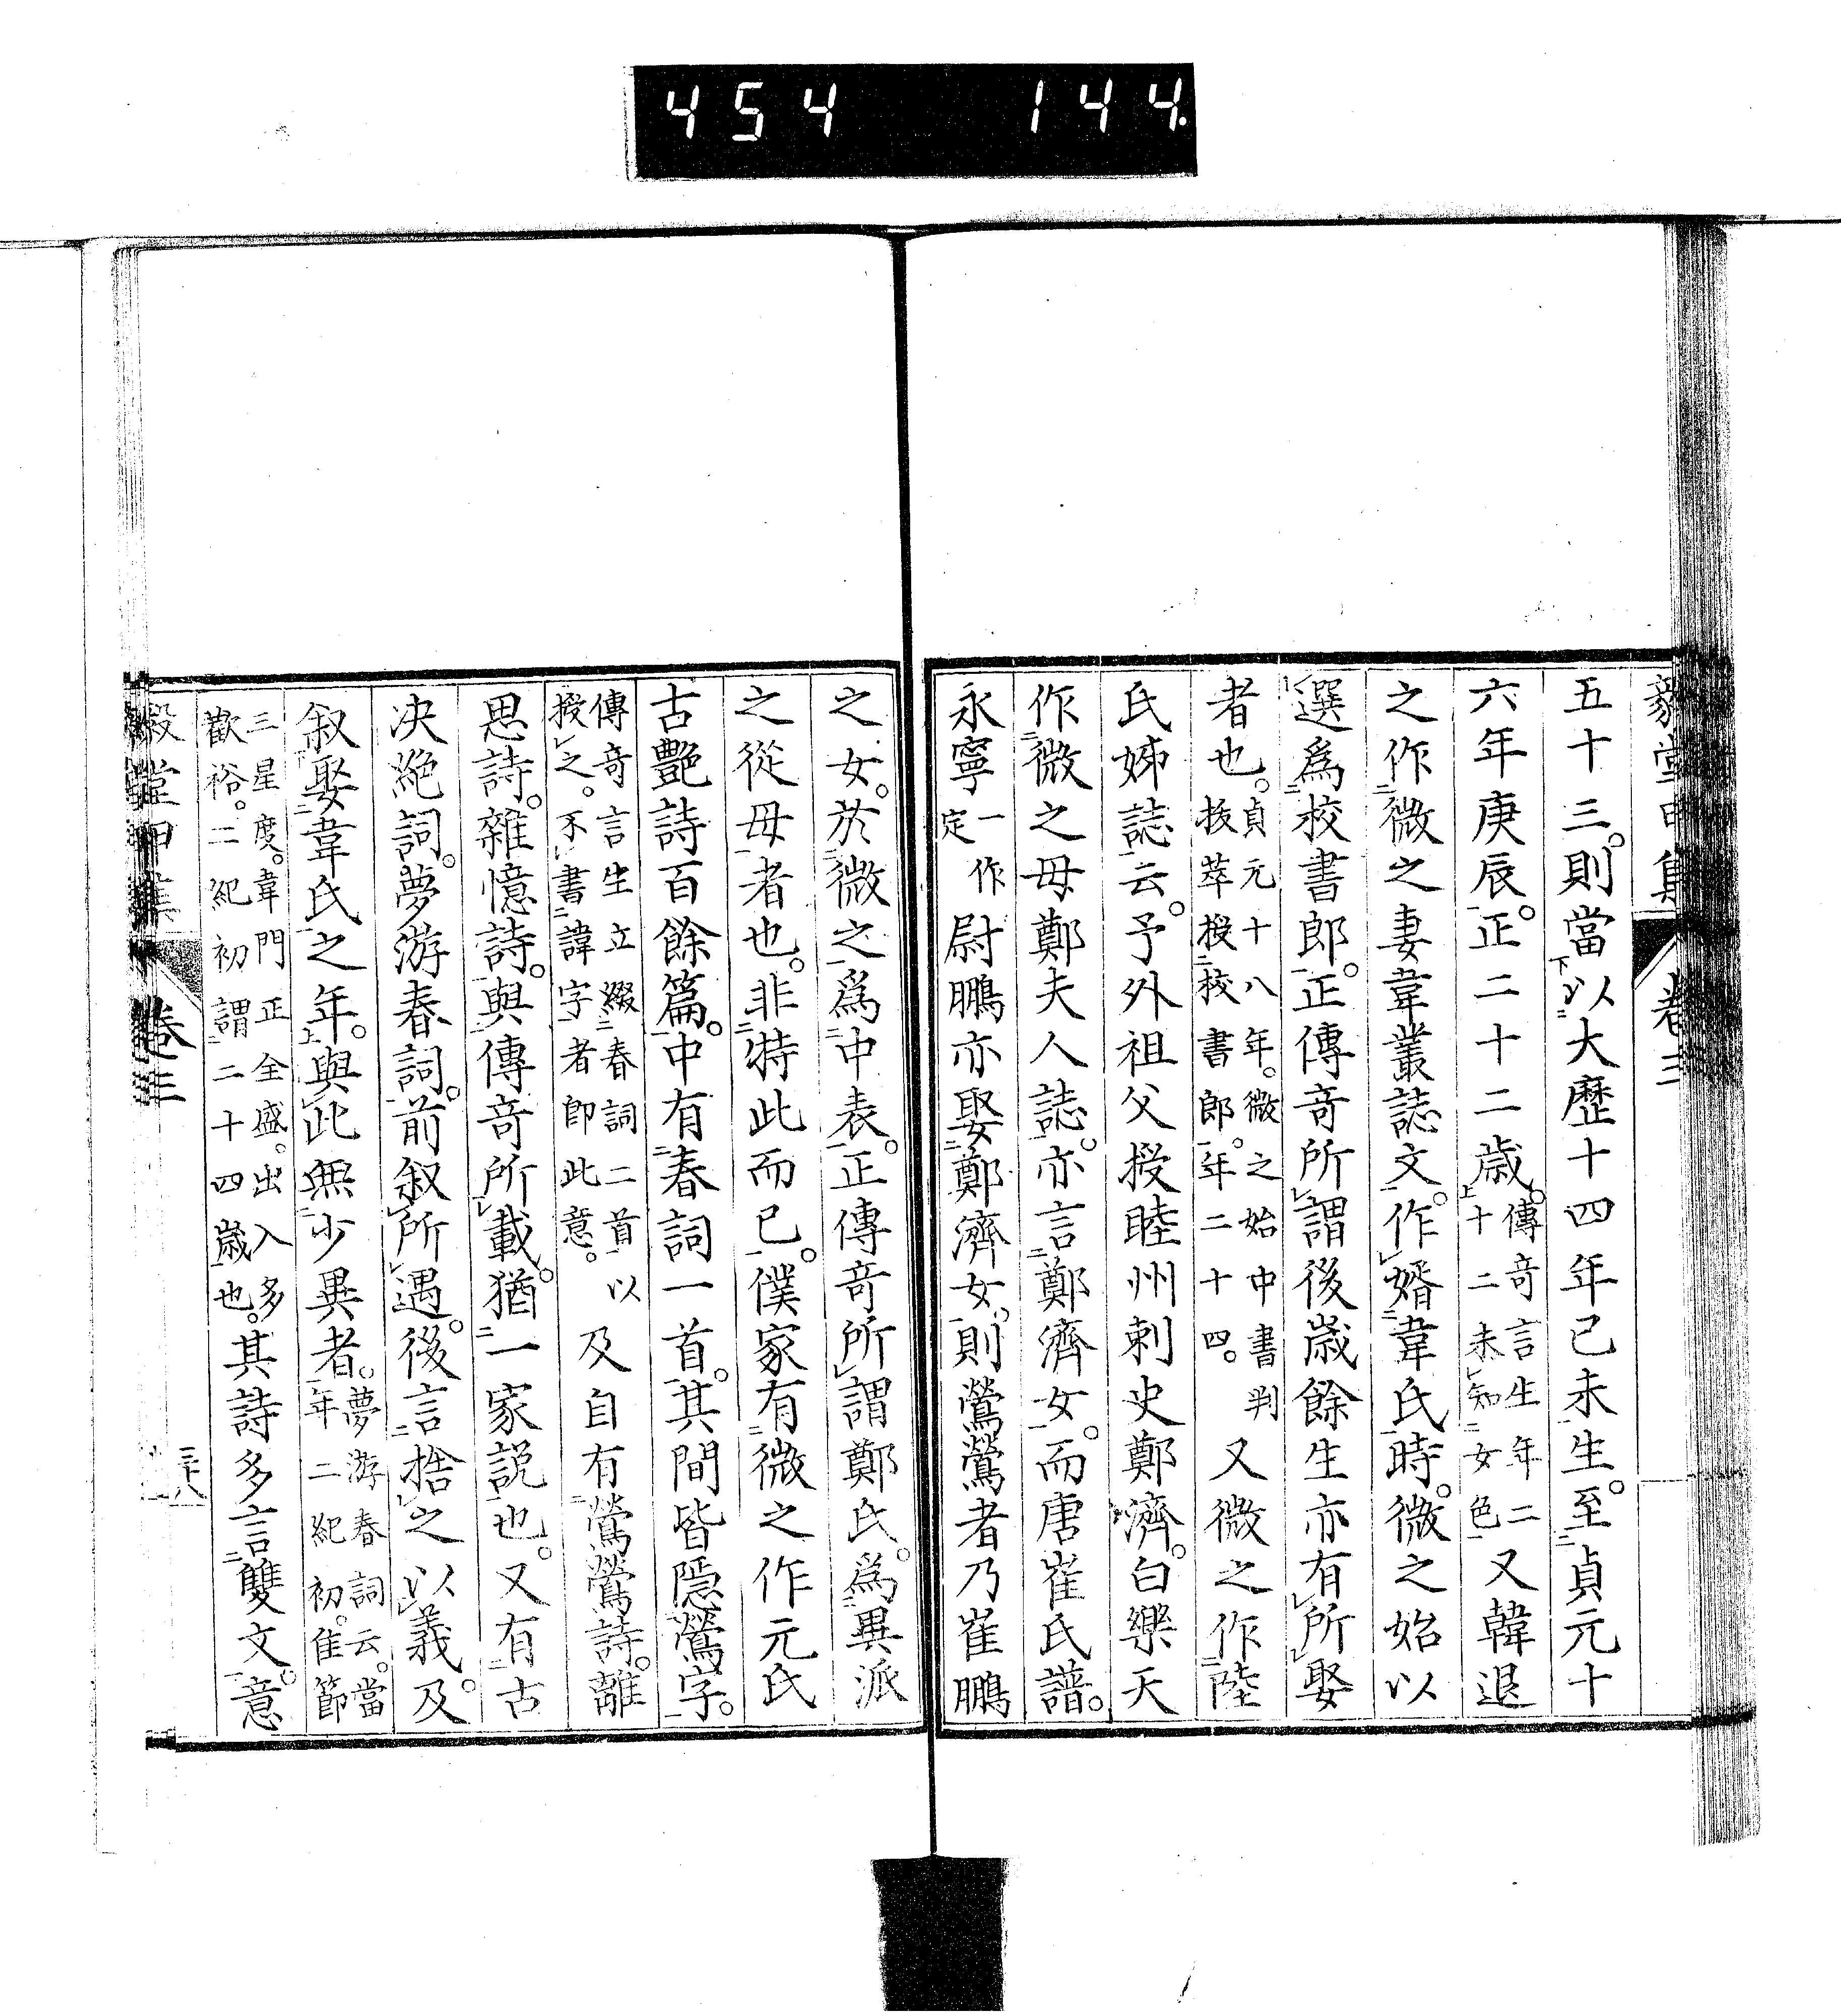 454 144.
毅堂甲集 卷三
五十三。則當以大歷十四年己未生。至貞元十
六年庚辰。正二十二歲。傳奇言生年二十二未知女色又韓退
之作微之妻韋叢誌文。作婿韋氏時。微之始以
選爲校書郎。正傳奇所謂後歲餘生亦有所娶
者也。貞元十八年。微之始中書判拔萃授校書郎。年二十四。又微之作陸
氏姊誌云。予外祖父授睦州刺史鄭濟。白樂天
作微之母鄭夫人誌。亦言鄭濟女。而唐崔氏譜。
永寧一作定尉鵬亦娶鄭濟女。則鶯鶯者乃崔鵬
之女。於微之爲中表。正傳奇所謂鄭氏。爲異派
之從母者也。非特此而已。僕家有微之作元氏
古艷詩百餘篇。中有春詞一首。其間皆隱鶯字。
傳奇言生立綴春詞二首以授之。不書諱字者卽此意。及自有鶯鶯詩。離
思詩。雜憶詩。與傳奇所載。猶一家説也。又有古
决絶詞。夢游春詞。前叙所遇。後言捨之以義。及
叙娶韋氏之年。與此無少異者。夢游春詞云。當年二紀初。佳節
三星度。韋門正全盛。出入多歡裕。二紀初謂二十四歲也。其詩多言雙文。意
毅堂甲集 卷三 三十八